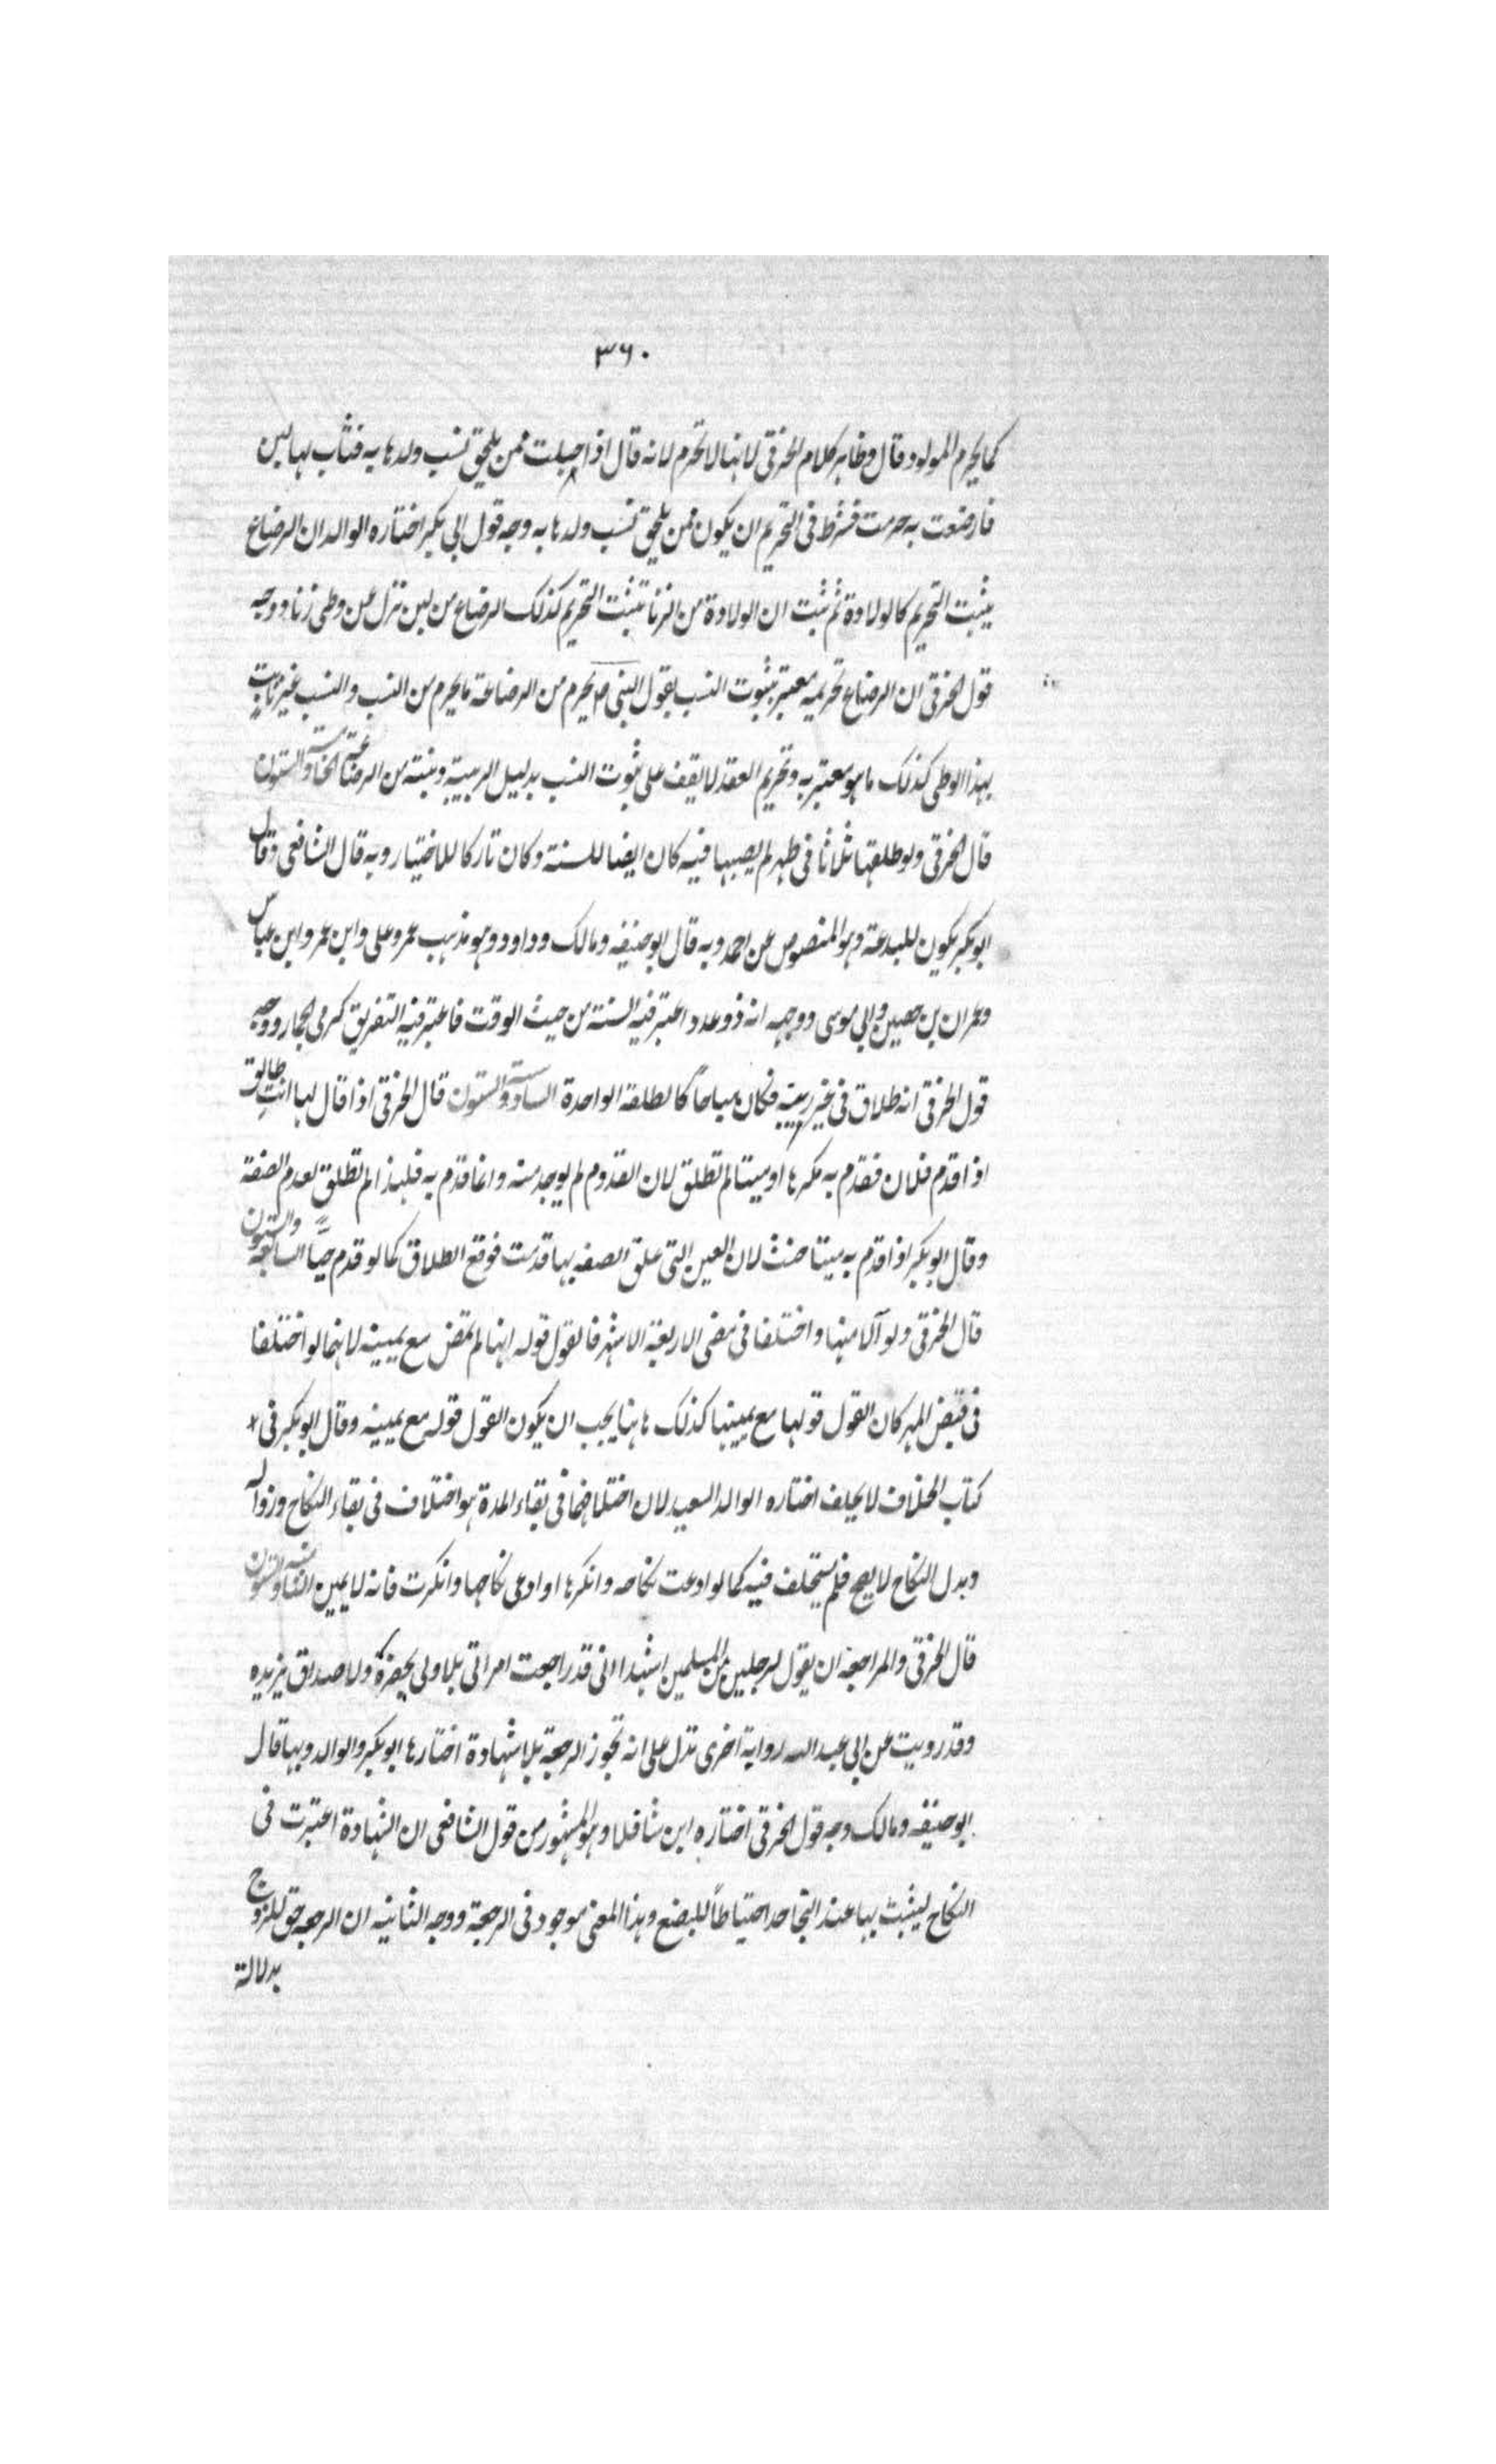 ٣٦٠
كما يحرم المولود قال وظاهر كلام الخرقي لا بنها لا تحرم لانه قال اذا حبلت ممن يلحق نسب ولدها به فثاب بها لبن
فارضعت به حرمت فشرط في التحريم ان يكون ممن يلحق نسب ولدها به وجه قول ابي بكر اختاره الوالد ان الرضاع
يثبت التحريم كالولادة ثم ثبت ان الولادة من الزنا تثبت التحريم كذلك الرضاع من لبن نزل عن وطى زنا ووجه
قول الخرقي ان الرضاع تحريمه معتبر بثبوت النسب بقول النبي ص يحرم من الرضاعة ما يحرم من النسب والنسب غير ثابت
بهذا الوطى كذلك ما هو معتبر به وتحريم العقد لا يقف على ثبوت النسب بدليل الربيبة وبنته من الرضاعة الخامسة والستون
قال الخرقي ولو طلقها ثلاثا في طهر لم يصبها فيه كان ايضا للسنة وكان تاركا للاختيار وبه قال الشافعي وقال
ابو بكر يكون للبدعة وهو المنصوص عن احمد وبه قال ابو حنيفه ومالك وداود وهو مذهب عمر وعلى وابن عمر وابن عباس
وعمران بن حصين وابي موسى ووجهه انه ذو عدد اعتبر فيه السنة من حيث الوقت فاعتبر فيه التفريق كرمي الجمار ووجه
قول الخرقي انه طلاق في غير ريبة فكان مباحاً كالطلقة الواحدة السادسة والستون قال الخرقي اذا قال لها انت طالق
اذا قدم فلان فقدم به مكرها او ميتا لم تطلق لان القدوم لم يوجد منه وانما قدم به فلهذا لم تطلق لعدم الصفة
وقال ابو بكر اذا قدم به ميتا حنث لان العين التي علق الصفه بها قدمت فوقع الطلاق كما لو قدم حيّاً السابعة والستون
قال الخرقي ولو آلا منها واختلفا في مضى الاربعة الاشهر فالقول قوله انها لم تمض مع يمينه لانهما لو اختلفا
في قبض المهر كان القول قولها مع يمينها كذلك هاهنا يجب ان يكون القول قوله مع يمينه وقال ابو بكر في
كتاب الخلاف لا يحلف اختاره الوالد السعيد لان اختلافهما في بقاء المدة هو اختلاف في بقاء النكاح وزواله
وبدل النكاح لا يصح فلم يستحلف فيه كما لو ادعت نكاحه وانكرها او ادعى نكاحها وانكرت فانه لا يمين الثامنة والستون
قال الخرقي والمراجعة ان يقول لرجلين من المسلمين اشهدا انى قد راجعت امراتى بلا ولى يحضره ولا صداق يزيده
وقد رويت عن ابي عبد الله رواية اخرى تدل على انه تجوز الرجعة بلا شهادة اختارها ابو بكر والوالد وبها قال
ابو حنيفه ومالك وجه قول الخرقي اختاره ابن شاقلا وهو المشهور من قول الشافعي ان الشهادة اعتبرت في
النكاح ليثبت بها عند التجاحد احتياطاً للبضع وهذا المعنى موجود في الرجعة ووجه الثانيه ان الرجعه حق للزوج
بدلالة